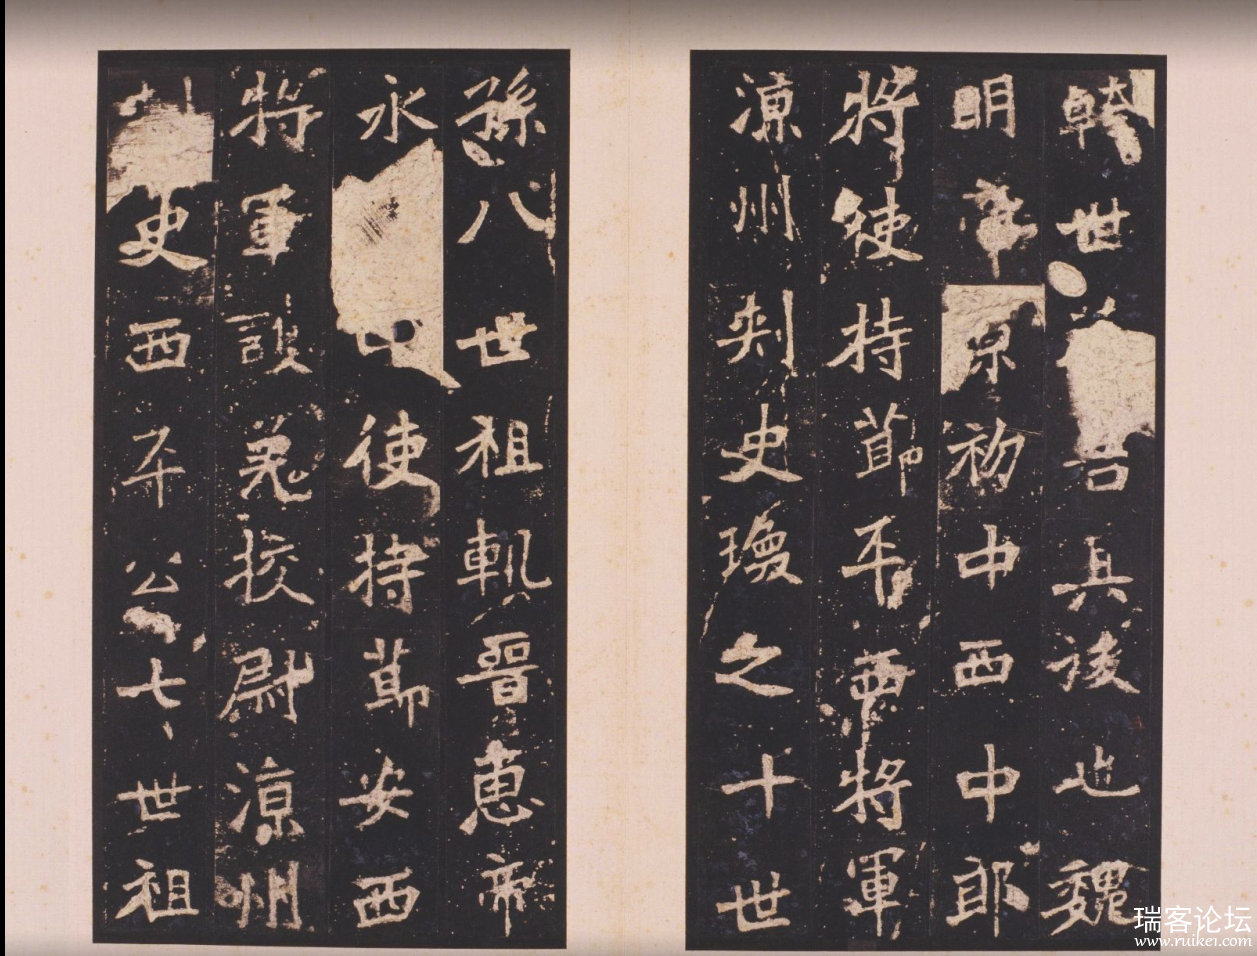 幹世其後也魏
明帝景初中西中郎
將使持節平西將軍
涼州刺史瑍之十世
孫八世祖軌晉惠帝
永中使持節安西
將軍護羌校尉涼州
刺史西平公七世祖
瑞客论坛
www.ruike1.com